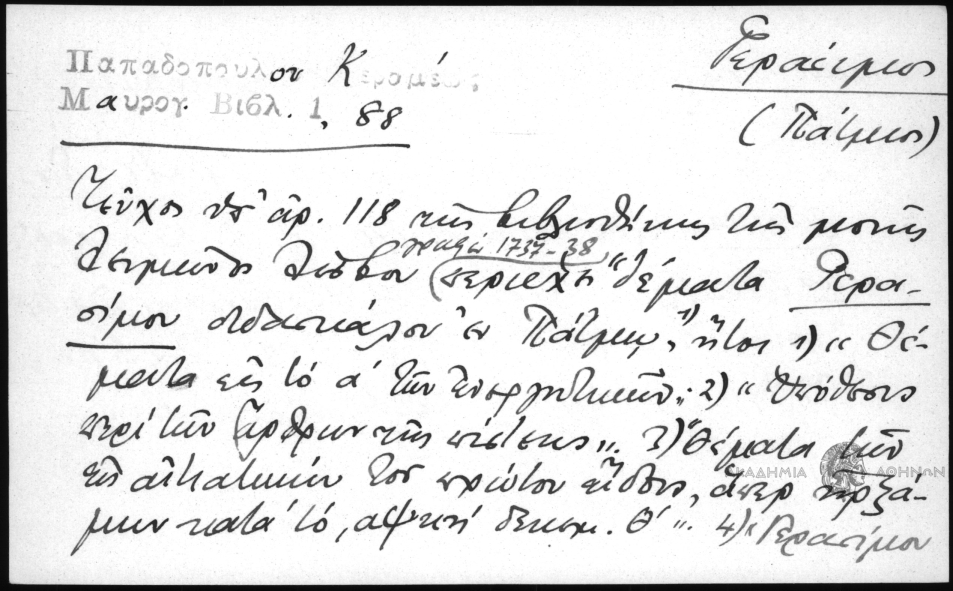 Παπαδοπουλου Κεραμέως
Μαυρογ. Βιβλ. 1, 88
Γεράσιμος
(Πάτμιος)
Τεῦχος ὑπ' ἀρ. 118 τῆς βιβλιοθήκης τῆς μονῆς
Λειμῶνος Λέσβου (γραφὲν 1737-38) περιέχει "θέματα Γερα-
σίμου διδασκάλου ἐν Πάτμῳ", ἤτοι 1) « Θέ-
ματα εἰς τὸ α' τῶν ». 2) « Ὑπόθεσις
περὶ τῶν ἄρθρων τῆς πίστεως ». 3) "Θέματα τῶν
εἰς αἰτιατικὴν τοῦ πρώτου εἴδους, ἅπερ ἠρξά-
μην κατὰ τὸ , αψλζ δεκεμ. θ' ». 4) « Γερασίμου
ΑΚΑΔΗΜΙΑ ΑΘΗΝΩΝ